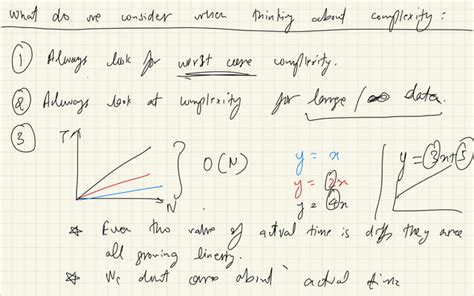 what do we consider when thinking about complexity :
① Always look for worst case complexity.
② Always look at complexity for large/∞ data.
③
T
N
O(N)
y = x
y = 2x
y = 4x
y = 3x+5
☆ Even tho value of actual time is diff they are
all growing linearly.
☆ We dont care about actual time